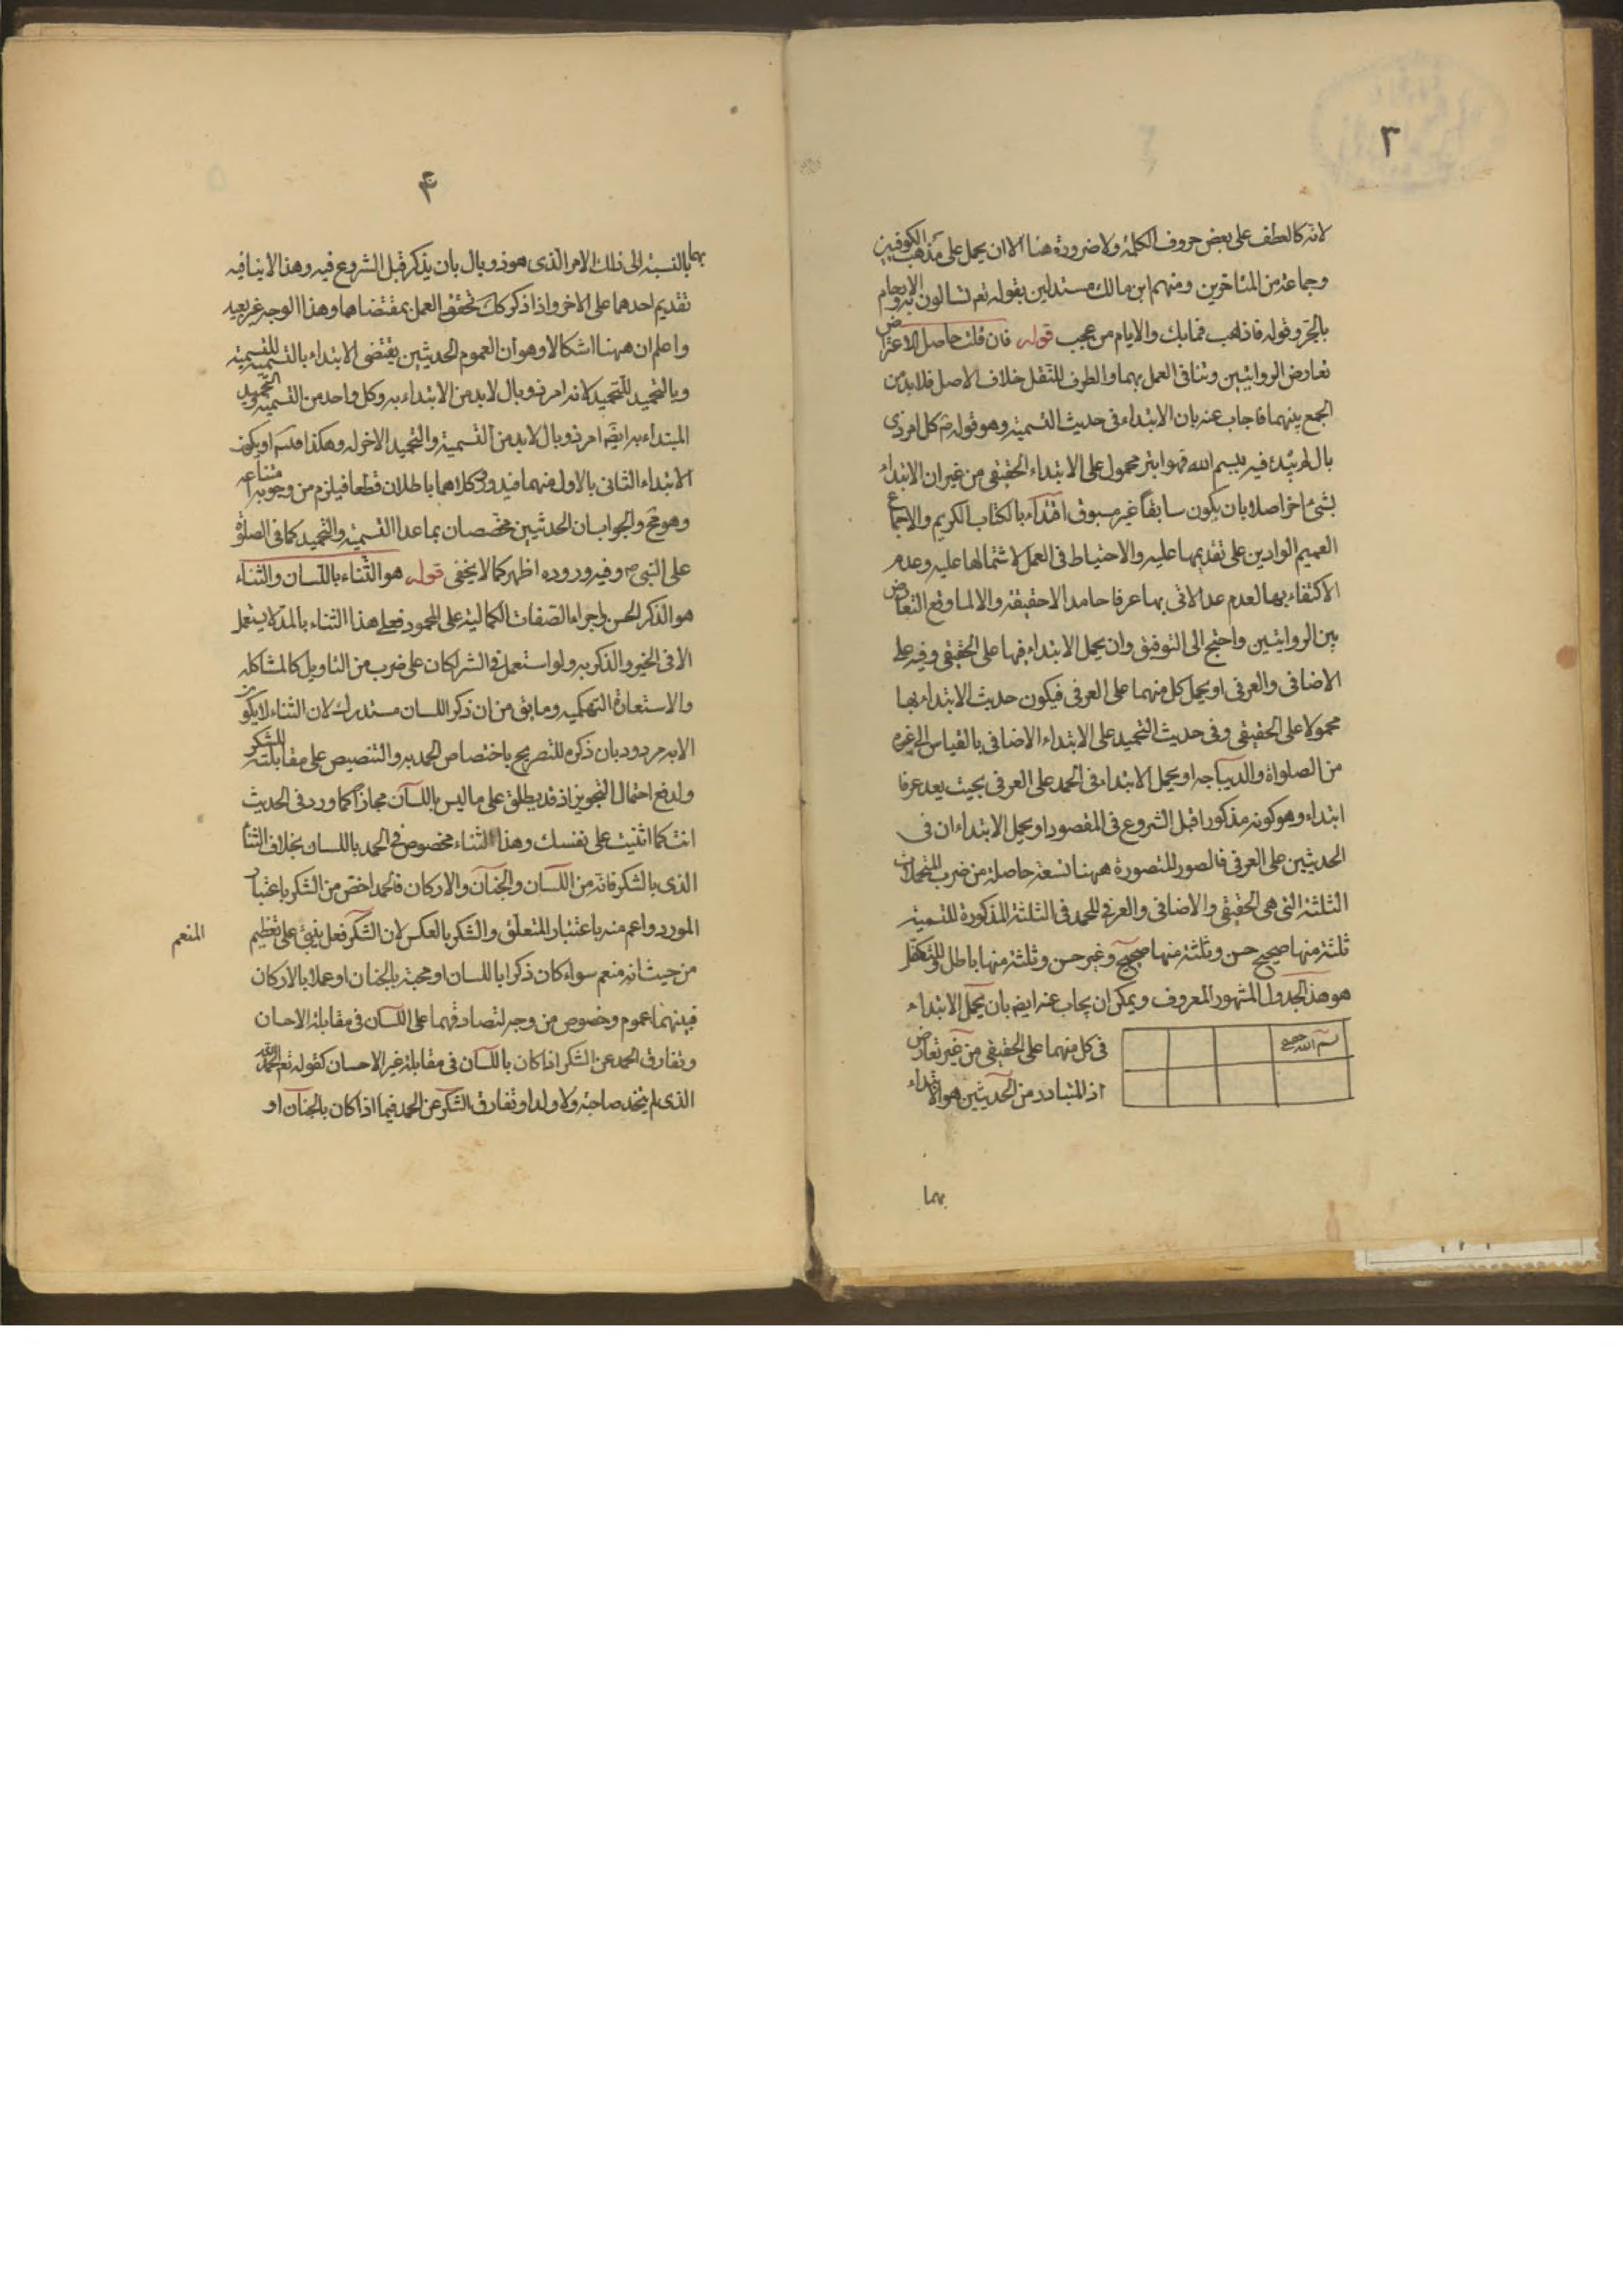 ٣
لانه كالعطف على بعض حروف الكلمة ولا ضرورة هنا الا ان يحمل على مذهب الكوفيين
وجماعة من المتاخرين ومنهم ابن مالك مستدلين بقوله تعم تسالون به والارحام
بالجر وقوله فاذهب فمابك والايام من عجب قوله فان قلت حاصل الاعتراض
تعارض الروايتين وتنافى العمل بهما والطرف للثقل خلاف الاصل فلابد من
الجمع بينهما فاجاب عنه بان الابتداء فى حديث التسمية وهو قوله ص كل امر ذى
بال لم يبتدء فيه ببسم الله فهو ابتر محمول على الابتداء الحقيقى من غير ان الابتداء
بشئ اخر اصلا بان يكون سابقاً غير مسبوق اقتداء بالكتاب الكريم والاجماع
العميم الواردين على تقديمها عليه والاحتياط فى العمل لاشتمالها عليه وعدم
الاكتفاء بها لعدم عد الاتى بها عرفا حامدا لاحقيقة والا لما وقع التعارض
بين الروايتين واحتج الى التوفيق وان يحمل الابتداء فيها على الحقيقى وفيه على
الاضافى والعرفى او يحمل كل منهما على العرفى فيكون حديث الابتداء بها
محمولا على الحقيقى وفى حديث التحميد على الابتداء الاضافى بالقياس الى غيره
من الصلواة والديباجه او يحمل الابتداء فى الحمد على العرفى بحيث يعد عرفا
ابتداء وهو كونه مذكورا قبل الشروع فى المقصود او يحمل الابتداءان فى
الحديثين على العرفى فالصور المتصورة ههنا تسعة حاصلة من ضرب المحملات
الثلثة التى هى الحقيقى والاضافى والعرفى للحمد فى الثلثة المذكورة للتسمية
ثلثة منها صحيح حسن وثلثة منها صحيح وغير حسن وثلثة منها باطل والمتكفل
هو هذ الجدول المشهور المعروف ويمكن ان يجاب عنه ايضا بان يحمل الابتداء
فى كل منهما على الحقيقى من غير تعارض
اذ المتبادر من الحديثين هو الابتداء
بسم الله
بهما
٤
بهما بالنسبة الى ذلك الامر الذى هو ذو بال بان يذكر قبل الشروع فيه وهذا لا ينافيه
تقديم احدهما على الاخر واذا ذكر كك تحقق العمل بمقتضاهما وهذا الوجه غير بعيد
واعلم ان ههنا اشكالا وهو ان العموم الحديثين يقتضى الابتداء بالتسمية للتسمية
وبالتحميد للتحميد لانه امر ذو بال لابد من الابتداء به وكل واحد من التسمية والتحميد
المبتداء به ايضا امر ذو بال لابد من التسمية والتحميد الاخر له وهكذا او يكون
الابتداء الثانى بالاول منهما فيدور وكلاهما باطلان قطعا فيلزم من وجوبه امتناعه
وهو مح والجواب ان الحديثين مخصصان بما عدا التسمية والتحميد كما فى الصلوة
على النبى ص وفيه وروده اظهر كما لا يخفى قوله هو الثناء باللسان والثناء
هو الذكر الحسن واجراء الصفات الكمالية على المحمود فعلى هذا الثناء بالمد لا يستعمل
الا فى الخير والذكر به ولو استعمل فى الشر لكان على ضرب من التاويل كالمشاكله
والاستعارة التهكميه وما بقى من ان ذكر اللسان مستدرك لان الثناء لا يكون
الا به مردود بان ذكره للتصريح باختصاص الحمد به والتنصيص على مقابلته للشكر
ولدفع احتمال التجويز اذ قد يطلق على ما ليس باللسان مجازا كما ورد فى الحديث
انت كما اثنيت على نفسك وهذا الثناء مخصوص فى الحمد باللسان بخلاف الثناء
الذى بالشكر فانه من اللسان والجنان والاركان فالحمد اخص من الشكر باعتبار
المورد واعم منه باعتبار المتعلق والشكر بالعكس لان الشكر فعل ينبئ على تعظيم
المنعم
من حيث انه منعم سواء كان ذكرا باللسان او محبة بالجنان او عملا بالاركان
فبينهما عموم وخصوص من وجه لتصادقهما على اللسان فى مقابلة الاحسان
وتفارق الحمد عن الشكر اذا كان باللسان فى مقابلة غير الاحسان كقوله تعم الحمد لله
الذى لم يتخذ صاحبة ولا ولدا وتفارق الشكر عن الحمد فيما اذا كان بالجنان او